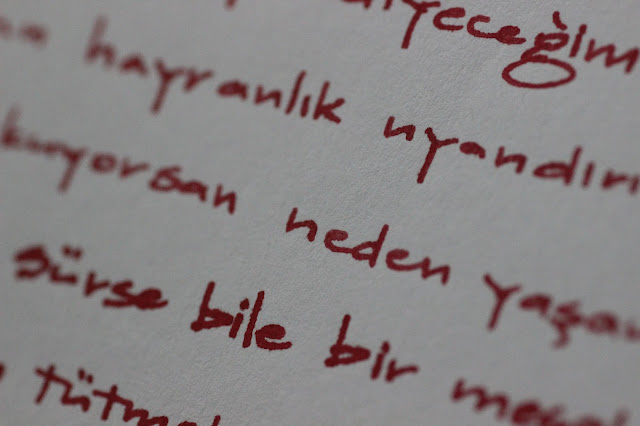 diyeceğim
hayranlık uyandırı
kuyorsan neden yaşa
sürse bile bir mese
tütme